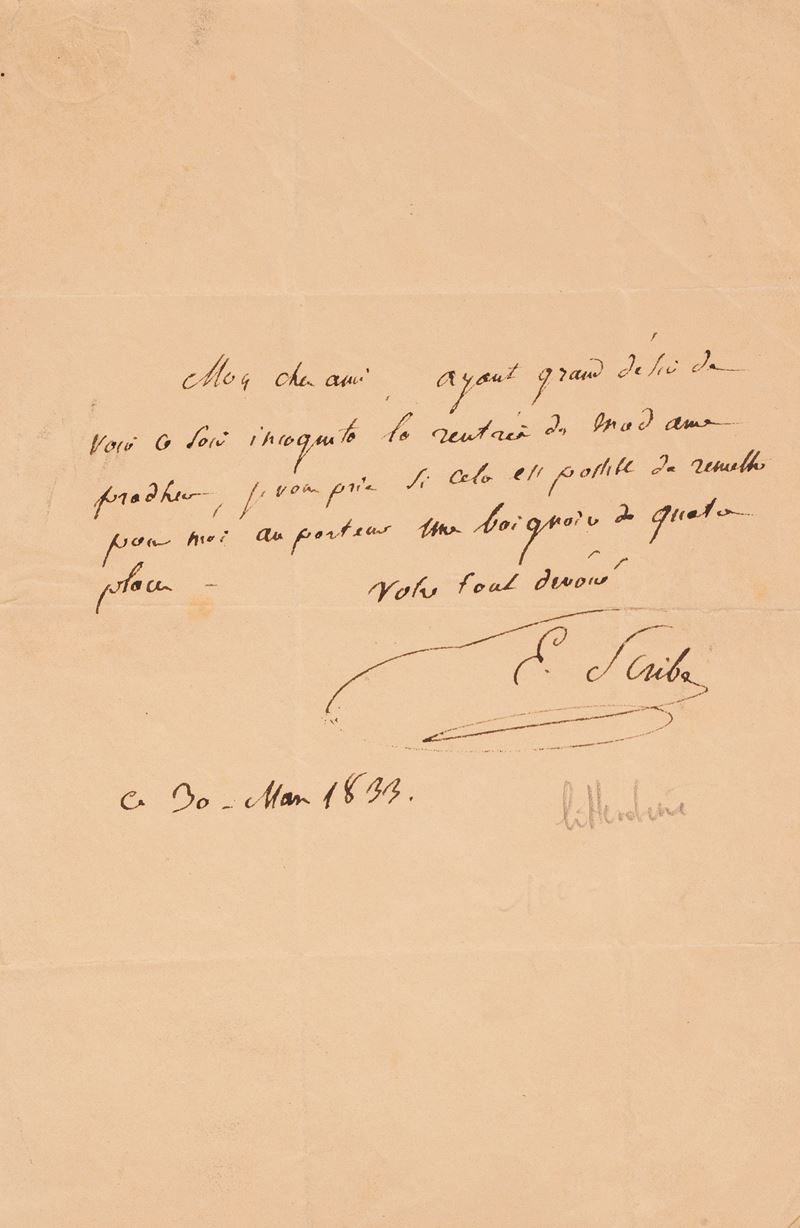 Mon cher ami, ayant grand désir de
voir ce soir incognito la rentrée de madame
pradher, je vous prie si cela est possible de remettre
pour moi au porteur une baignoire de quatre
places -
Votre tout dévoué
E. Scribe
ce 30 - Mars 1833.
litterature